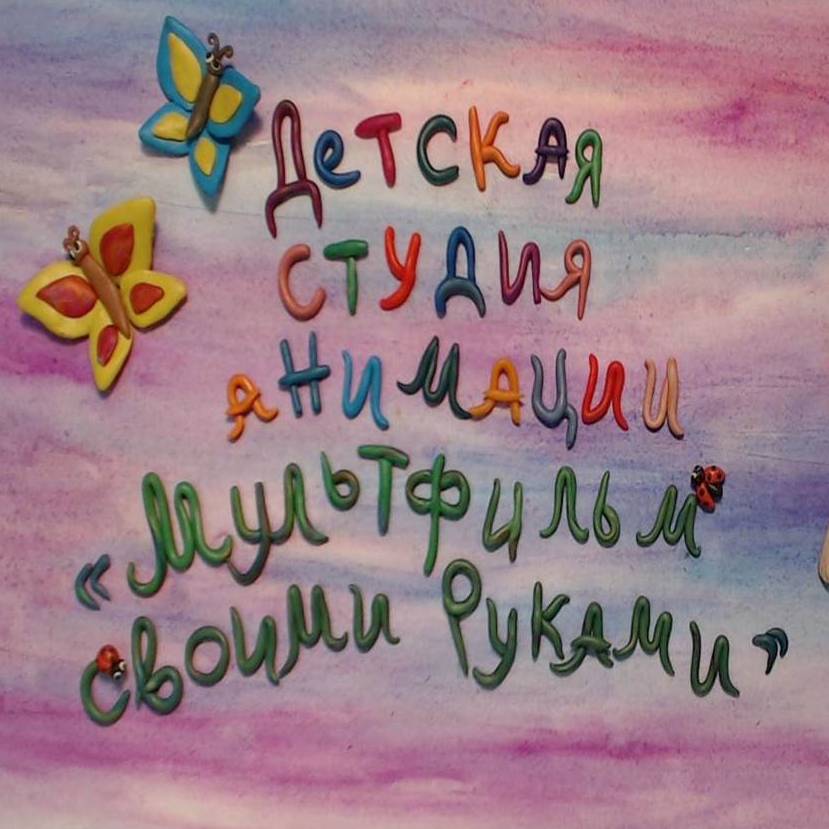 Детская
студия
анимации
«Мультфильм
своими Руками»